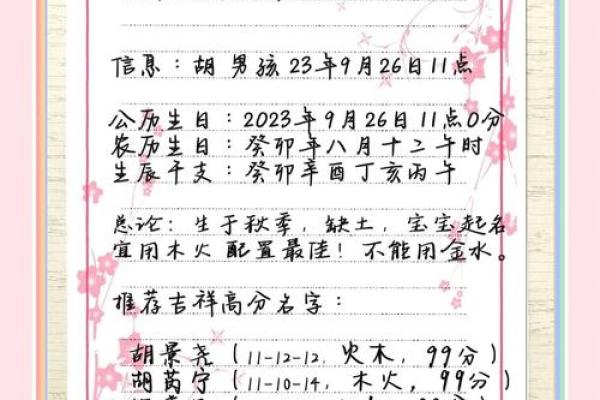 信息：胡 男孩 23年9月26日11点
公历生日：2023年9月26日11点0分
农历生日：癸卯年八月十二午时
生辰干支：癸卯辛酉丁亥丙午
总论：生于秋季，缺土，宝宝起名
宜用木火 配置最佳！不能用金水。
推荐吉祥高分名字：
胡景尧（11-12-12，火木，99分）
胡芮宁（11-10-14，木火，99分）